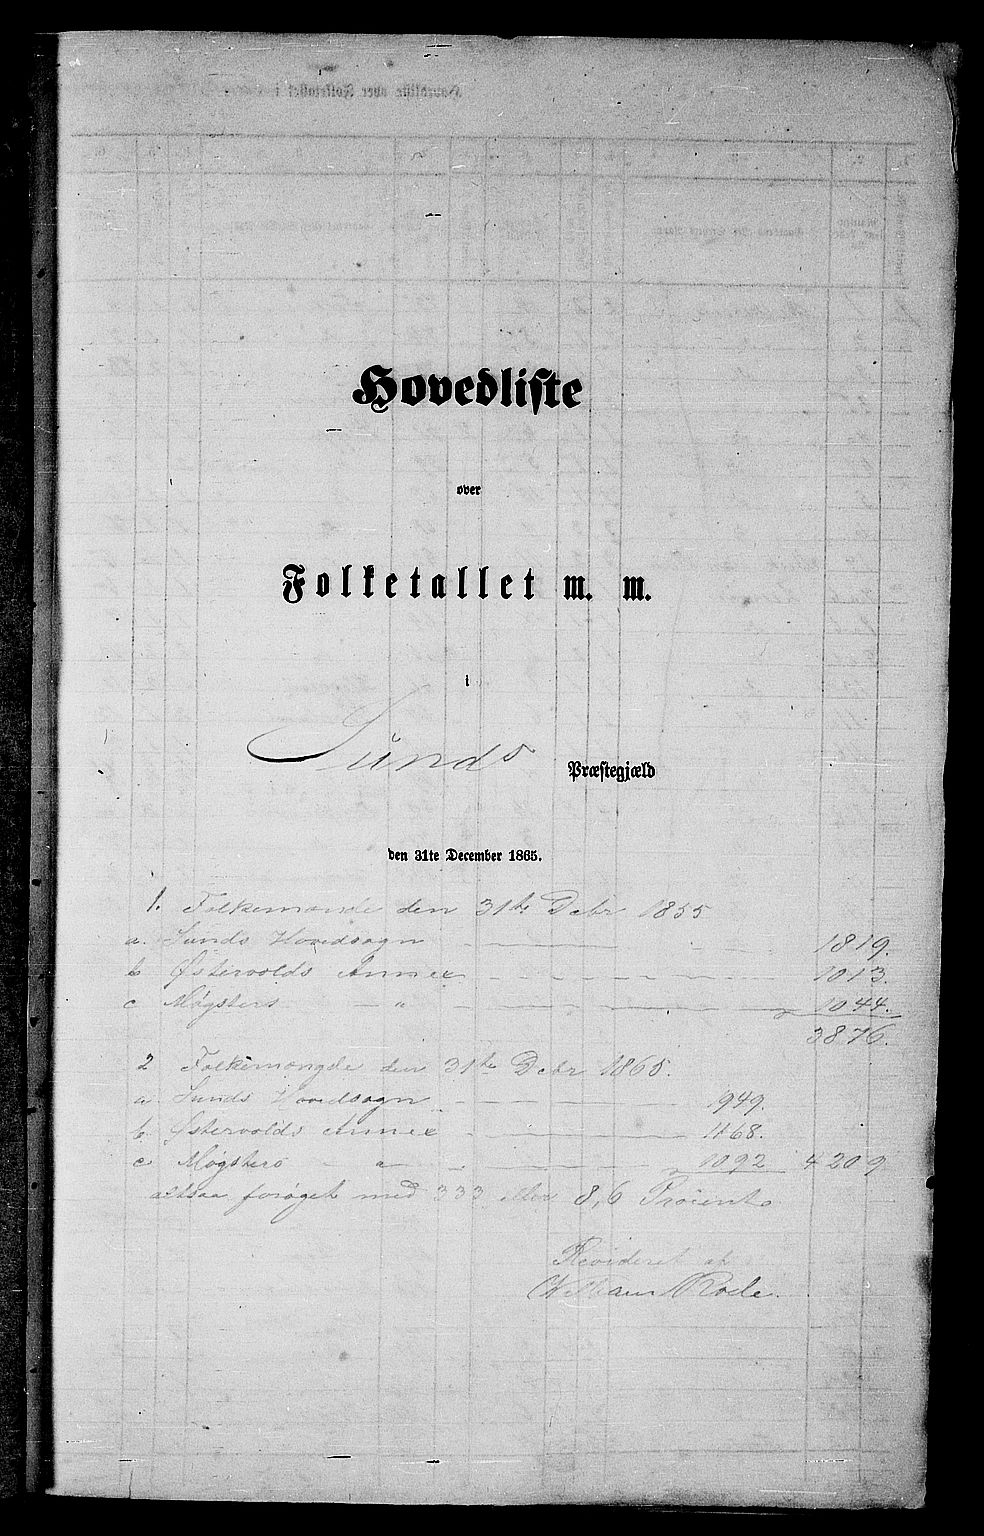 Hovedliste
over
Folketallet m. m.
i
Sunds Præstegjæld
den 31te December 1865.
1. Folkemængde den 31te Debr 1855
a. Sunds Hovedsogn 1819.
b Østervolds Annex 1013.
c Møgsters — " — 1044.
3876.
2 Folkemængde den 31te Debr 1865.
a Sunds Hovedsogn 1949.
b. Østervolds Annex 1168.
c Møgsters — " — 1092 4209
altsaa forøget med 333 eller 8,6 Procent
Revideret af
Rode.